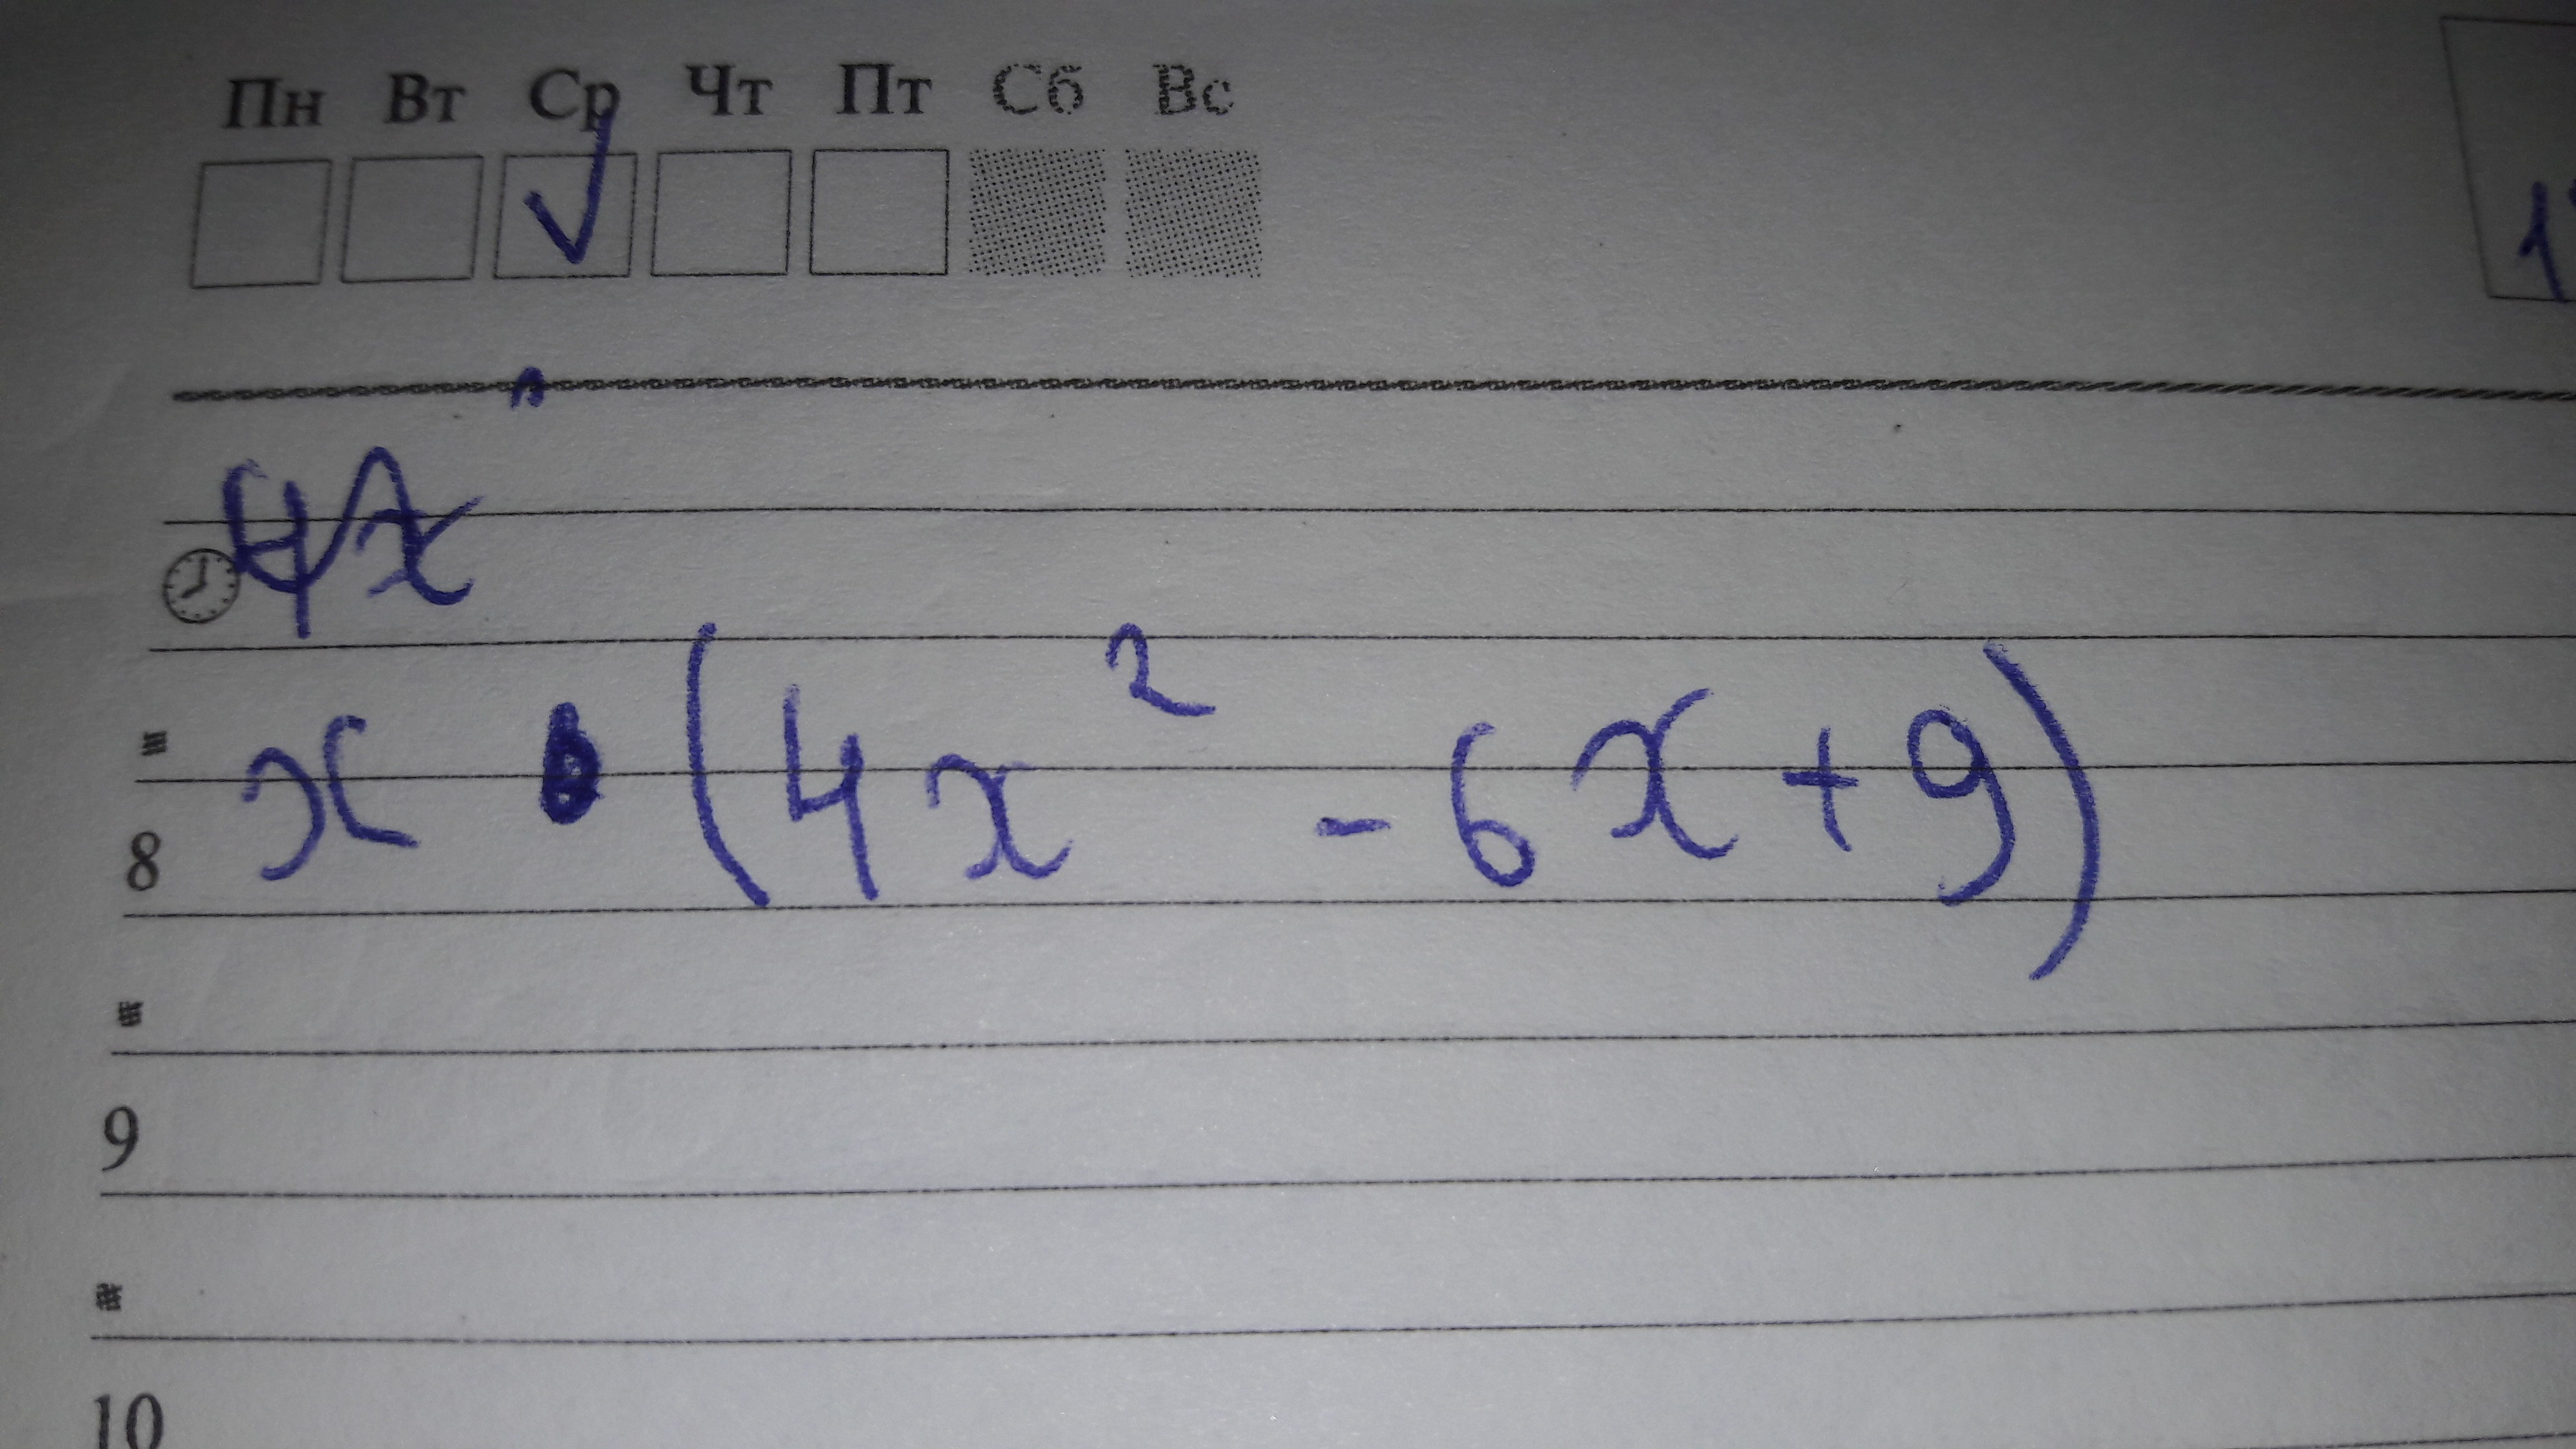 Пн Вт Ср Чт Пт Сб Вс
4x
x • (4x² - 6x + 9)
8
9
10